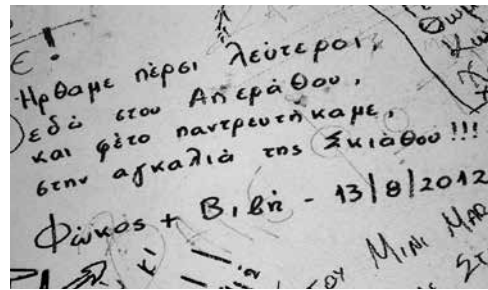 Ε!
Ηρθαμε πέρσι λεύτεροι,
εδώ στου Απεράθου,
και φέτο παντρευτήκαμε,
στην αγκαλιά της Σκιάθου!!!
Φώκος + Βιβή - 13/8/2012
ΚΙ
ΤΟΥ MINI MAR
ΣΤ